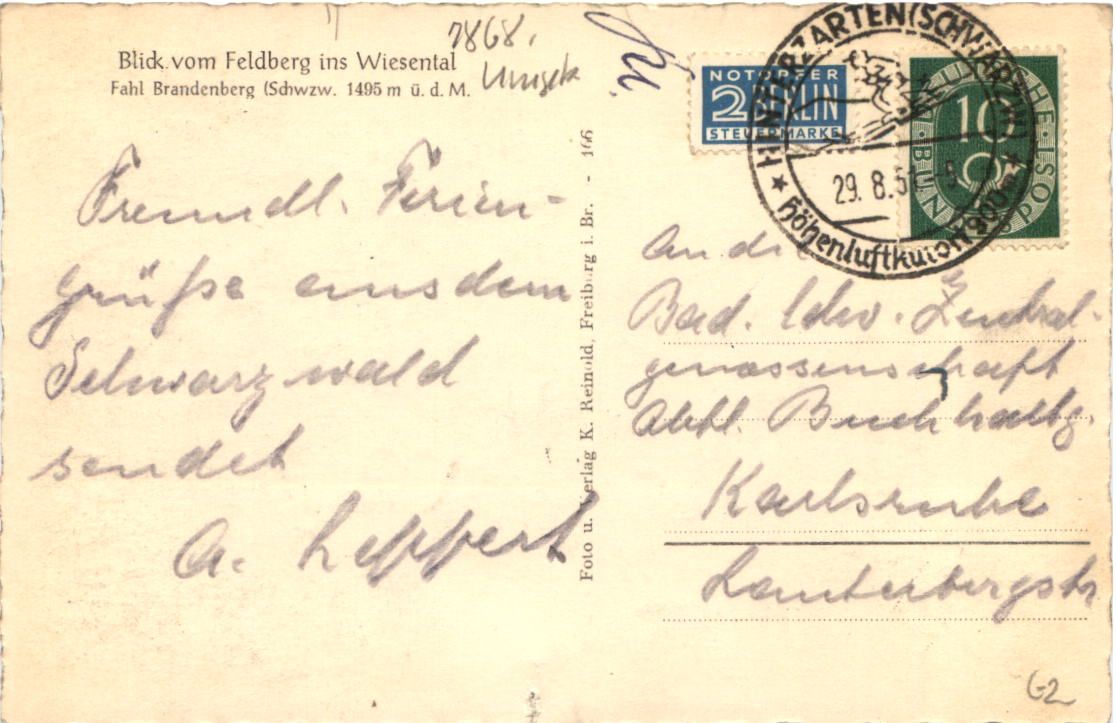 Blick vom Feldberg ins Wiesental
Fahl Brandenberg (Schwzw. 1495 m ü. d. M.
7868.
Freundl. Ferien-
grüße aus dem
Schwarzwald
sendet
A. Leppert
Foto u. Verlag K. Reinold, Freiburg i. Br. - 166
NOTOPFER
2 BERLIN
STEUERMARKE
HINTERZARTEN (SCHWARZW)
29. 8. 5
Höhenluftkurort 900m
DEUTSCHE BUNDESPOST
10
An die
Bad. ldw. Zentral-
genossenschaft
Abtl. Buchhaltg.
Karlsruhe
Lauterbergstr
62